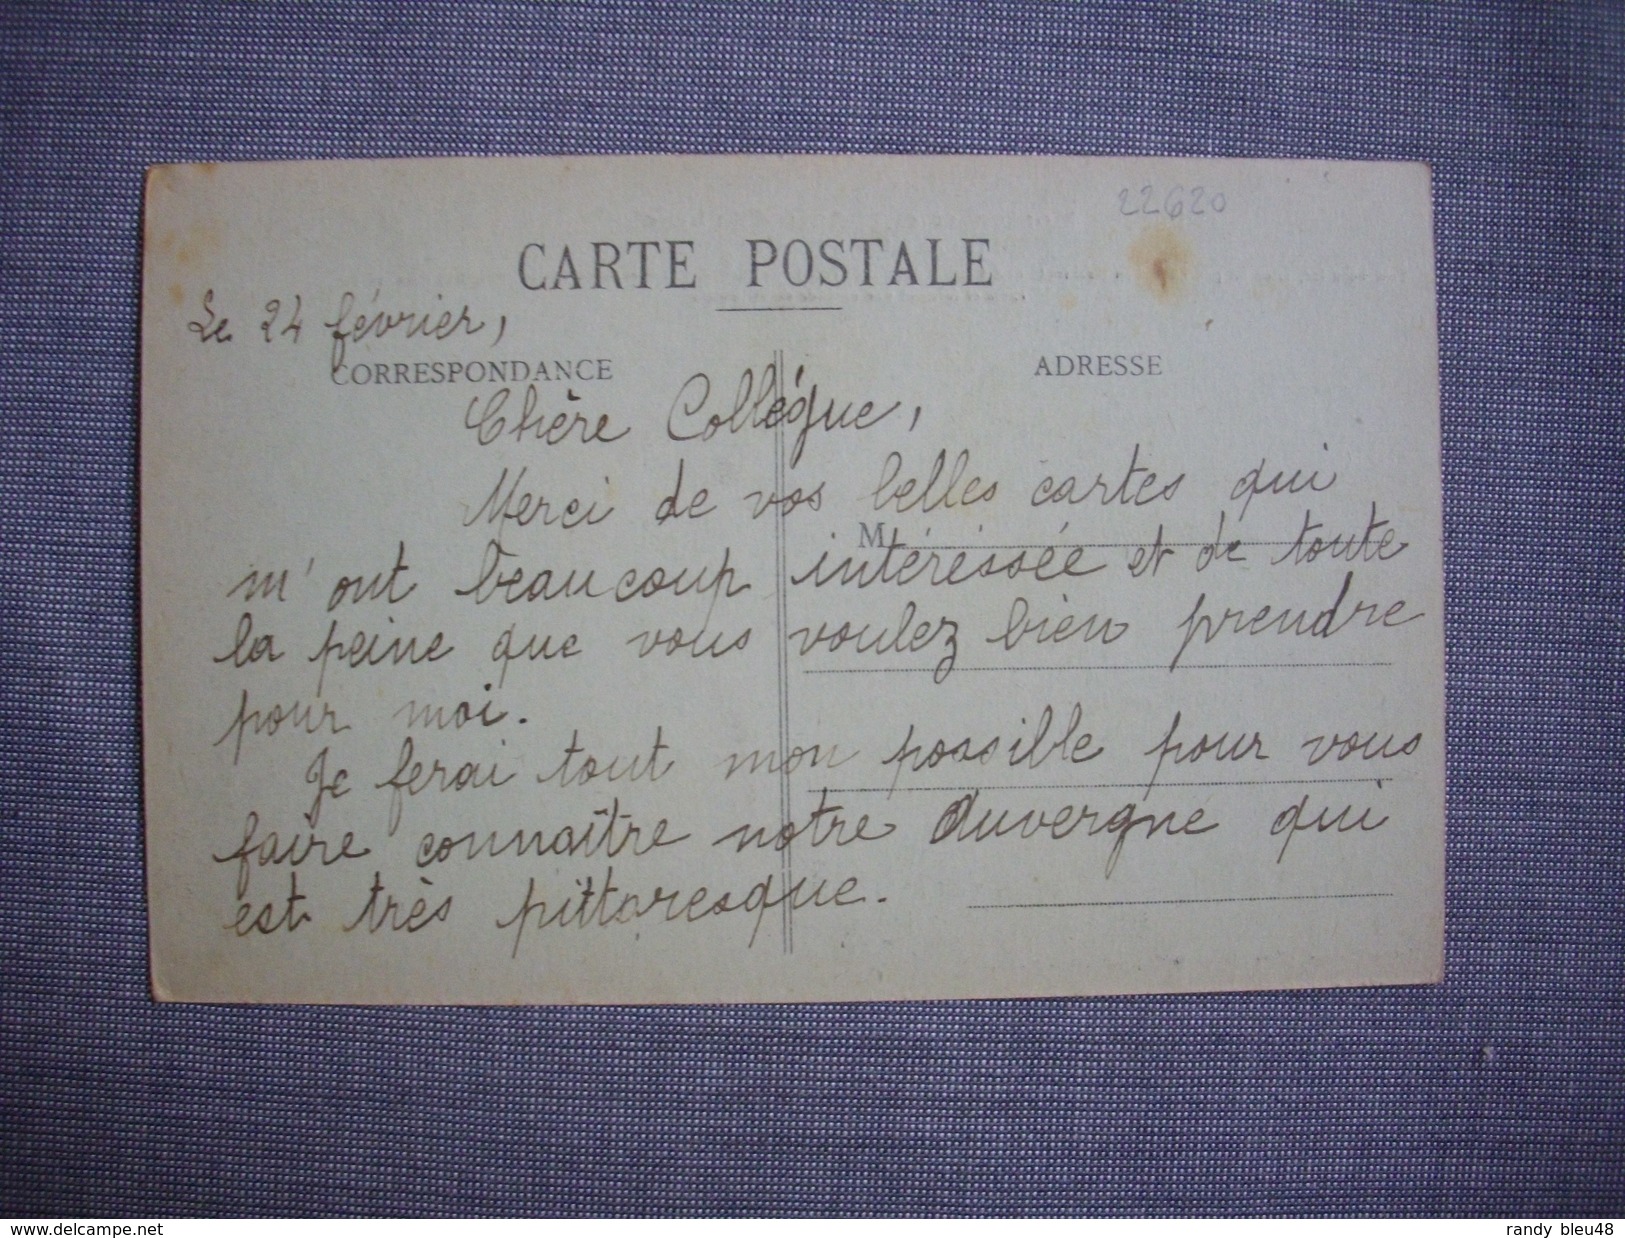 22620
CARTE POSTALE
Le 24 février,
CORRESPONDANCE
ADRESSE
Chère Collégue,
Merci de vos belles cartes qui
M
m'ont beaucoup intéréssée et de toute
la peine que vous voulez bien prendre
pour moi.
Je ferai tout mon possible pour vous
faire connaître notre Auvergne qui
est très pittoresque.
www.delcampe.net
randy_bleu48